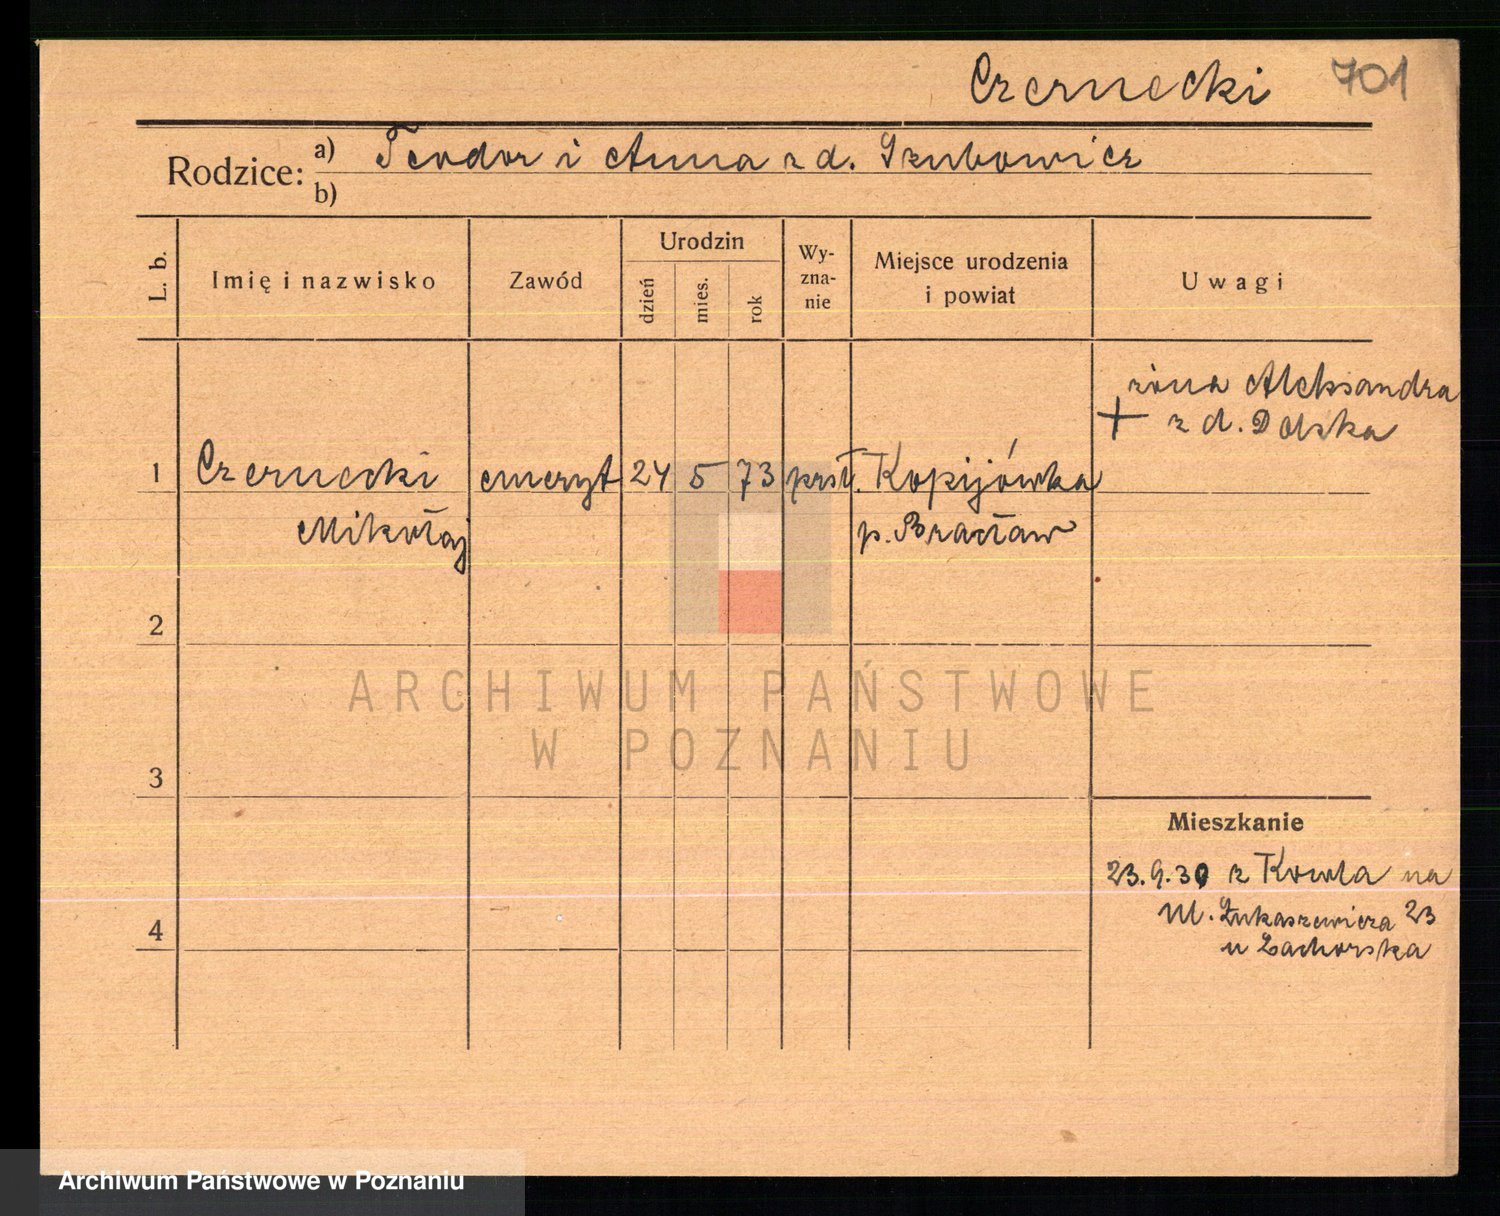 Czernecki 701
Rodzice: a) Teodor i Anna z d.
b)
L. b. Imię i nazwisko Zawód Urodzin dzień mies. rok Wy-zna-nie Miejsce urodzenia i powiat Uwagi
żona Aleksandra
+ z d. Dolska
1 Czernecki emeryt 24 5 73 prsł. Kopijówka
Mikołaj p. Bracław
2
ARCHIWUM PAŃSTWOWE
W POZNANIU
3
Mieszkanie
23.9.30 z Kowla na
4 ul. Łukaszewicza 23
u Zachorska
Archiwum Państwowe w Poznaniu